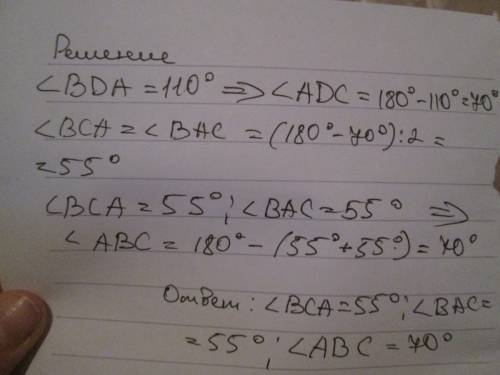 Решение
∠BDA = 110° => ∠ADC = 180° - 110° = 70°
∠BCA = ∠BAC = (180° - 70°) : 2 =
= 55°
∠BCA = 55°; ∠BAC = 55° =>
∠ABC = 180° - (55° + 55°) = 70°
Ответ: ∠BCA = 55°; ∠BAC =
= 55°; ∠ABC = 70°